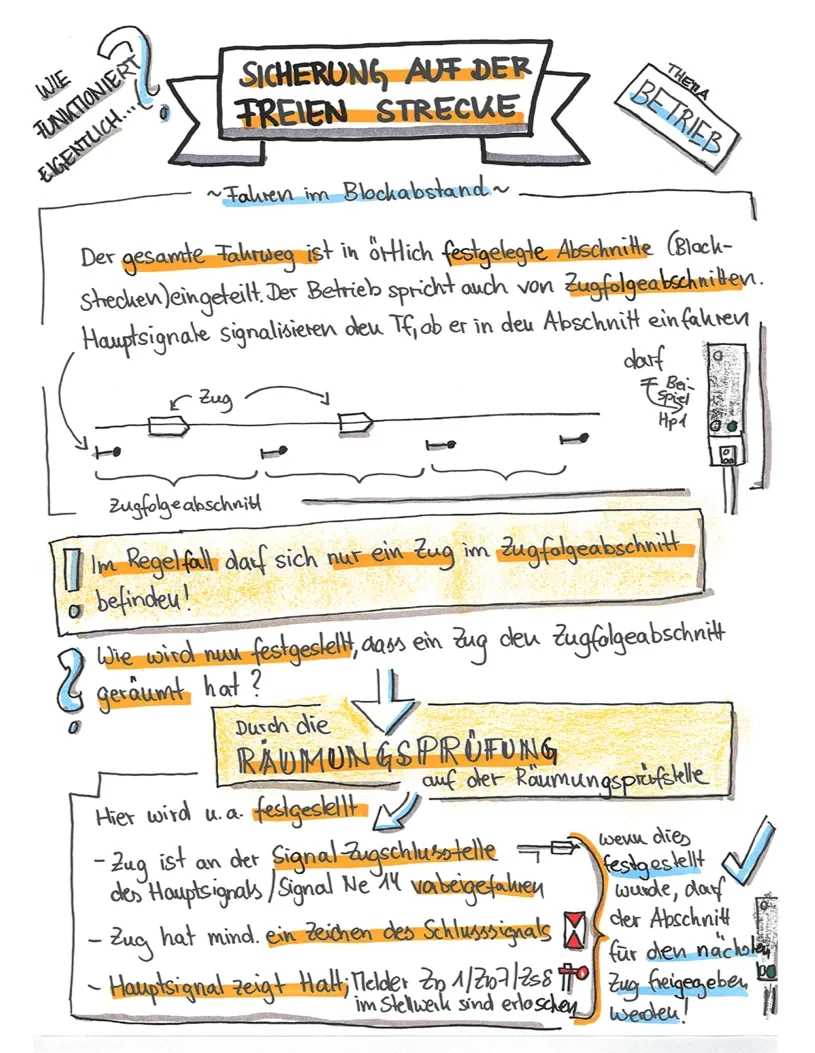 WIE
FUNKTIONIERT
EIGENTLICH....
?
SICHERUNG AUF DER
FREIEN STRECKE
THEMA
BETRIEB
~Fahren im Blockabstand~
Der gesamte Fahrweg ist in örtlich festgelegte Abschnitte (Block-
strecken) eingeteilt. Der Betrieb spricht auch von Zugfolgeabschnitten.
Hauptsignale signalisieren den Tf, ob er in den Abschnitt einfahren
darf
Bei-
spiel
Hp1
Zug
Zugfolgeabschnitt
! Im Regelfall darf sich nur ein Zug im Zugfolgeabschnitt
befinden!
? Wie wird nun festgestellt, dass ein Zug den Zugfolgeabschnitt
geräumt hat?
Durch die
RÄUMUNGSPRÜFUNG
auf der Räumungsprüfstelle
Hier wird u.a. festgestellt
- Zug ist an der Signal-Zugschlussstelle
des Hauptsignals/Signal Ne 14 vorbeigefahren
- Zug hat mind. ein Zeichen des Schlusssignals
- Hauptsignal zeigt Halt; Melder Zs 1/Zs7/Zs8
im Stellwerk sind erloschen
wenn dies
festgestellt
wurde, darf
der Abschnitt
für den nächsten
Zug freigegeben
werden!